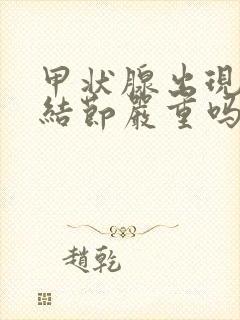 甲状腺出現
結節嚴重嗎
趙乾